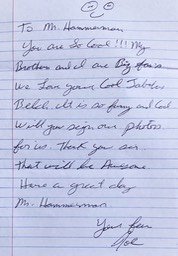 To Mr. Hammerman
You are so cool!!! My
Brother and I are Big fans
We Love your Cool Jabba
Belch. It is so funny and cool
Will you sign our photos
for us. Thank you sir.
That will be Awesome.
Have a great day
Mr. Hammerman
Your fan
Joe